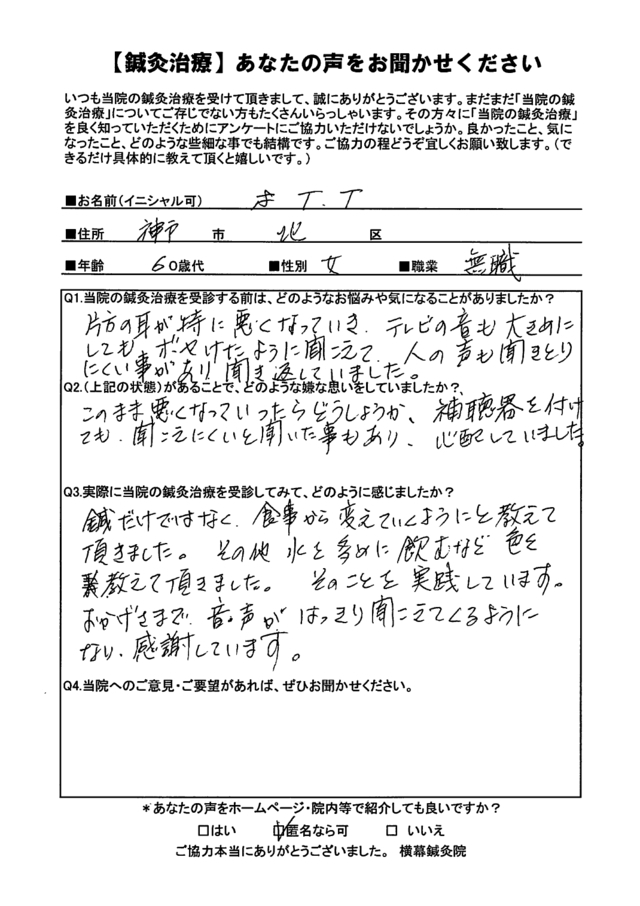 【鍼灸治療】あなたの声をお聞かせください
いつも当院の鍼灸治療を受けて頂きまして、誠にありがとうございます。まだまだ「当院の鍼
灸治療」についてご存じでない方もたくさんいらっしゃいます。その方々に「当院の鍼灸治療」
を良く知っていただくためにアンケートにご協力いただけないでしょうか。良かったこと、気に
なったこと、どのような些細な事でも結構です。ご協力の程どうぞ宜しくお願い致します。(で
きるだけ具体的に教えて頂くと嬉しいです。)
■お名前(イニシャル可) T.T
■住所 神戸 市 北 区
■年齢 60歳代 ■性別 女 ■職業 無職
Q1.当院の鍼灸治療を受診する前は、どのようなお悩みや気になることがありましたか?
片方の耳が特に悪くなっていき、テレビの音も大きめに
してもボヤけたように聞こえて、人の声も聞きとり
にくい事があり聞き返していました。
Q2.(上記の状態)があることで、どのような嫌な思いをしていましたか?
このまま悪くなっていったらどうしようか、補聴器を付け
ても、聞こえにくいと聞いた事もあり、心配していました。
Q3.実際に当院の鍼灸治療を受診してみて、どのように感じましたか?
鍼だけではなく、食事から変えていくようにと教えて
頂きました。その他水を多めに飲むなど色々
教えて頂きました。そのことを実践しています。
おかげさまで、音・声がはっきり聞こえてくるように
なり、感謝しています。
Q4.当院へのご意見・ご要望があれば、ぜひお聞かせください。
*あなたの声をホームページ・院内等で紹介しても良いですか?
□はい ☑匿名なら可 □ いいえ
ご協力本当にありがとうございました。 横幕鍼灸院